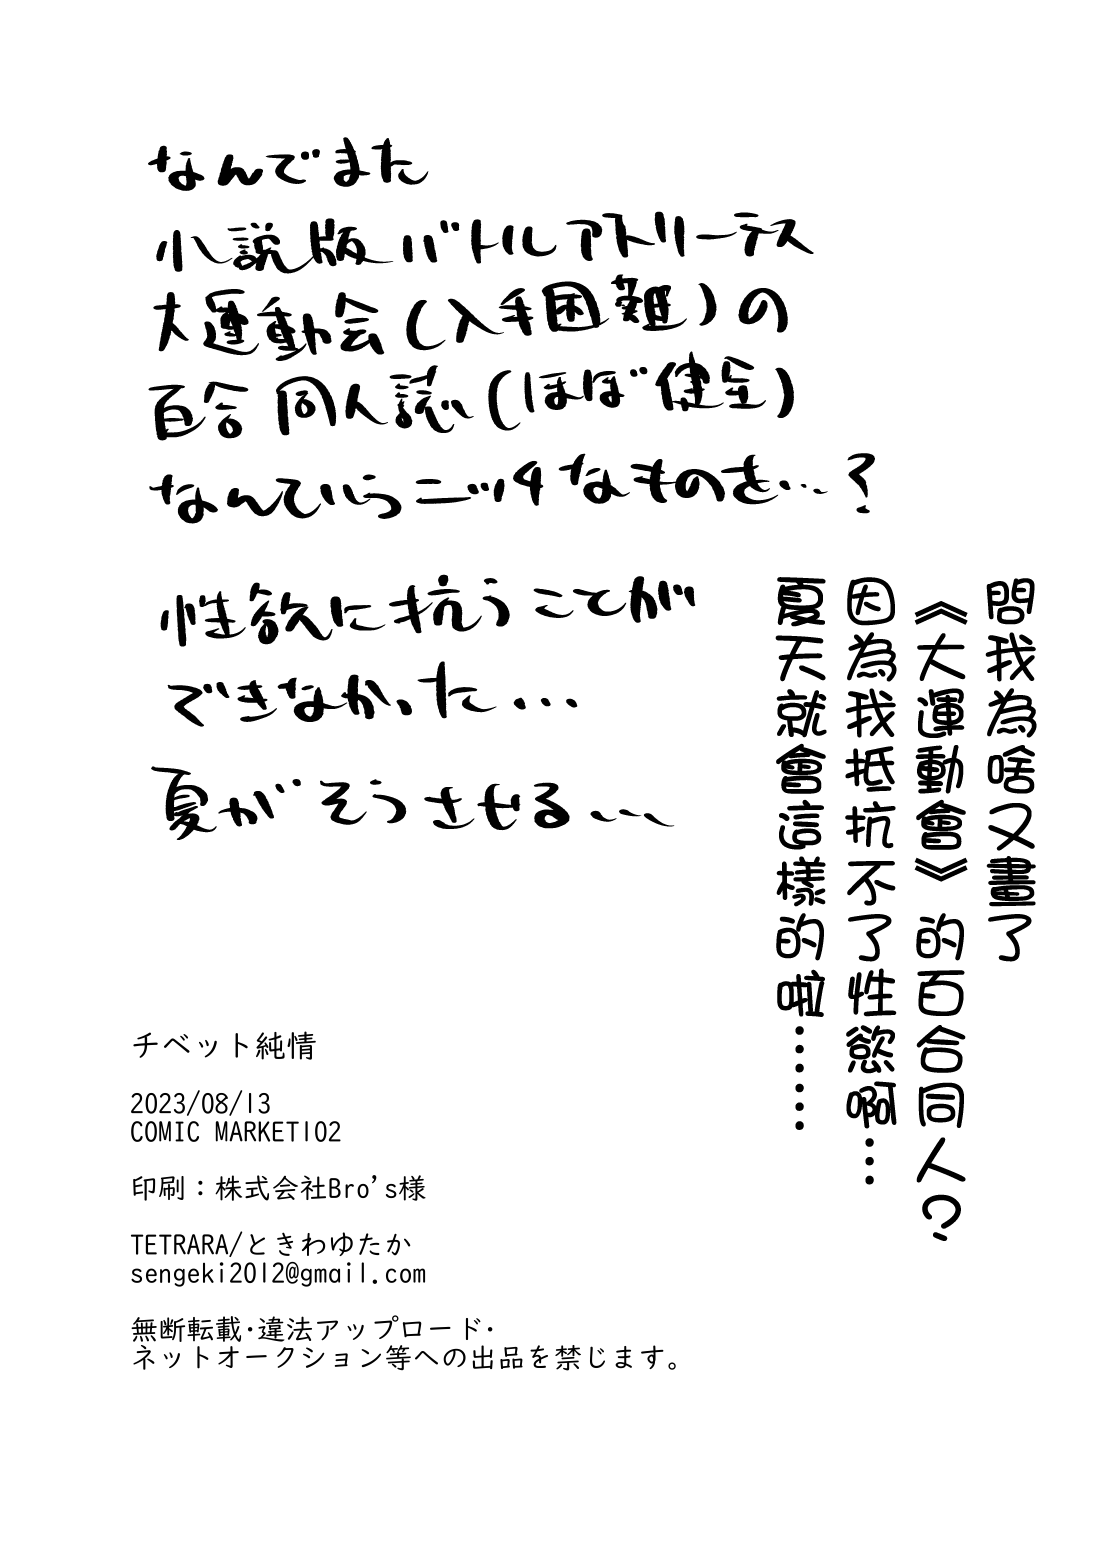 なんでまた
小説版バトルアトリーテス
大運動会(入手困難)の
百合同人誌(ほぼ健全)
なんていうニッチなものを…?
性欲に抗うことが
できなかった…
夏がそうさせる…
問我為啥又畫了
《大運動會》的百合同人?
因為我抵抗不了性慾啊…
夏天就會這樣的啦……
チベット純情
2023/08/13
COMIC MARKET102
印刷：株式会社Bro's様
TETRARA/ときわゆたか
sengeki2012@gmail.com
無断転載・違法アップロード・
ネットオークション等への出品を禁じます。